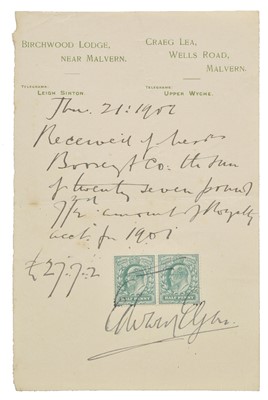 BIRCHWOOD LODGE,
NEAR MALVERN.
TELEGRAMS:
LEIGH SINTON.
CRAEG LEA,
WELLS ROAD,
MALVERN.
TELEGRAMS:
UPPER WYCHE.
21: 1902
Received of Messrs
Boosey & Co: the sum
of twenty seven pounds
7/2 amount of Royalty
acct. for 1901
£27.7.2
HALF PENNY HALF PENNY
Edward Elgar.